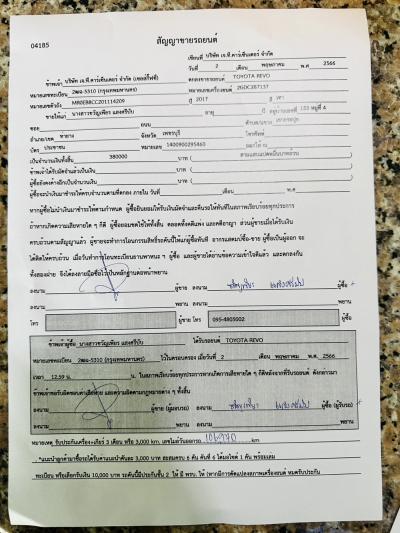 04185
สัญญาขายรถยนต์
เขียนที่ บริษัท เจ.ที.คาร์เซ็นเตอร์ จำกัด
วันที่ 2 เดือน พฤษภาคม พ.ศ 2566
ข้าพเจ้า บริษัท เจ.ที.คาร์เซ็นเตอร์ จำกัด ตกลงขายรถยนต์ TOYOTA REVO
หมายเลขทะเบียน 2ฒฉ-5310 (กรุงเทพมหานคร) หมายเลขเครื่องยนต์ 2GDC287137
หมายเลขตัวถัง MR0EB8CC201114209 ปี 2017 สี เทา
ขายให้แก่ อายุ ปี อยู่บ้านเลขที่ 153 หมู่ที่ 4
ซอย ถนน ตำบล/แขวง
อำเภอ/เขต ท่ายาง จังหวัด เพชรบุรี โทรศัพท์
บัตร ประชาชน หมายเลข 1400900295460 ออกให้ ณ
เป็นจำนวนเงินทั้งสิ้น 380000 บาท ( สามแสนแปดหมื่นบาทถ้วน )
ข้าพเจ้าได้รับมัดจำแล้วเป็นเงิน บาท ( )
ผู้ซื้อยังคงค้างอีกเป็นจำนวนเงิน บาท ( )
ผู้ซื้อจะนำเงินมาชำระให้ครบจำนวนตามที่ตกลง ภายใน วันที่ เดือน พ.ศ.
หากผู้ซื้อไม่นำเงินมาชำระตามกำหนด ผู้ซื้อยินยอมให้ริบเงินมัดจำและคืนรถให้ทันทีในสภาพเรียบร้อยทุกประการ
ถ้าหากเกิดความเสียหายใด ๆ ก็ดี ผู้ซื้อยอมชดใช้ให้ทั้งสิ้น ตลอดทั้งคดีแพ่ง และคดีอาญา ส่วนผู้ขายเมื่อได้รับเงิน
ครบถ้วนตามสัญญาแล้ว ผู้ขายจะทำการโอนกรรมสิทธิ์รถคันนี้ให้แก่ผู้ซื้อทันที อากรแสตมป์ซื้อ-ขาย ผู้ซื้อเป็นผู้ออก
ทั้งสองฝ่าย จึงได้ลงลายมือชื่อไว้เป็นหลักฐานต่อหน้าพยาน
ลงนาม ผู้ขาย ลงนาม ผู้ซื้อ
ลงนาม พยาน ลงนาม พยาน
โทร ผู้ขาย โทร 095-4805002 ผู้ซื้อ
ข้าพเจ้าผู้ซื้อ ได้รับรถยนต์ TOYOTA REVO
หมายเลขทะเบียน 2ฒฉ-5310 (กรุงเทพมหานคร) ไว้ในครอบครอง เมื่อวันที่ 2 เดือน พฤษภาคม พ.ศ. 2566
เวลา 12.59 น. ในสภาพเรียบร้อยทุกประการหากเกิดการเสียหายใด ๆ ก็ดีหลังจากที่รับรถยนต์ ดังกล่าวมา
ข้าพเจ้าขอรับผิดชอบต่อค่าเสียหาย และความผิดตามกฎหมายต่าง ๆ ทั้งสิ้น
ลงนาม ผู้ขาย (ผู้มอบรถ) ลงนาม ผู้ซื้อ (ผู้รับรถ)
ลงนาม พยาน ลงนาม พยาน
หมายเหตุ รับประกันเครื่อง+เกียร์ 3 เดือน หรือ 3,000 km. เลขไมล์วันออกรถ 106970 km
*แนะนำลูกค้ามาซื้อรถได้รับค่าแนะนำคันละ 3,000 บาท สะสมครบ 6 คัน คันที่ 6 ได้มอไซค์ 1 คัน พร้อมเลย
ทะเบียน หรือเลือกรับเงิน 10,000 บาท รถคันนี้มีประกันชั้น 2 ให้ มี พรบ. ให้ (หากมีการดัดแปลงสภาพเครื่องยนต์ หมดรับประกัน